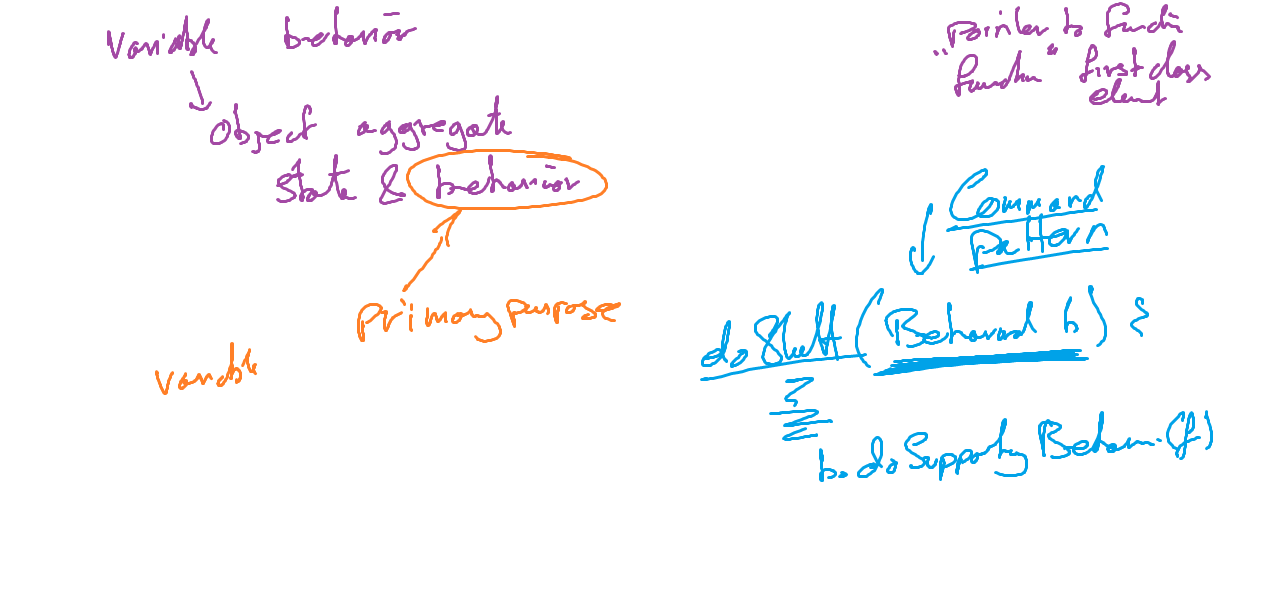 Variable behavior
Object aggregate
state & behavior
primary purpose
variable
Pointer to function
"function" first class
element
Command
pattern
doStuff (Behavior b) {
b.doSupporting Behavior.()